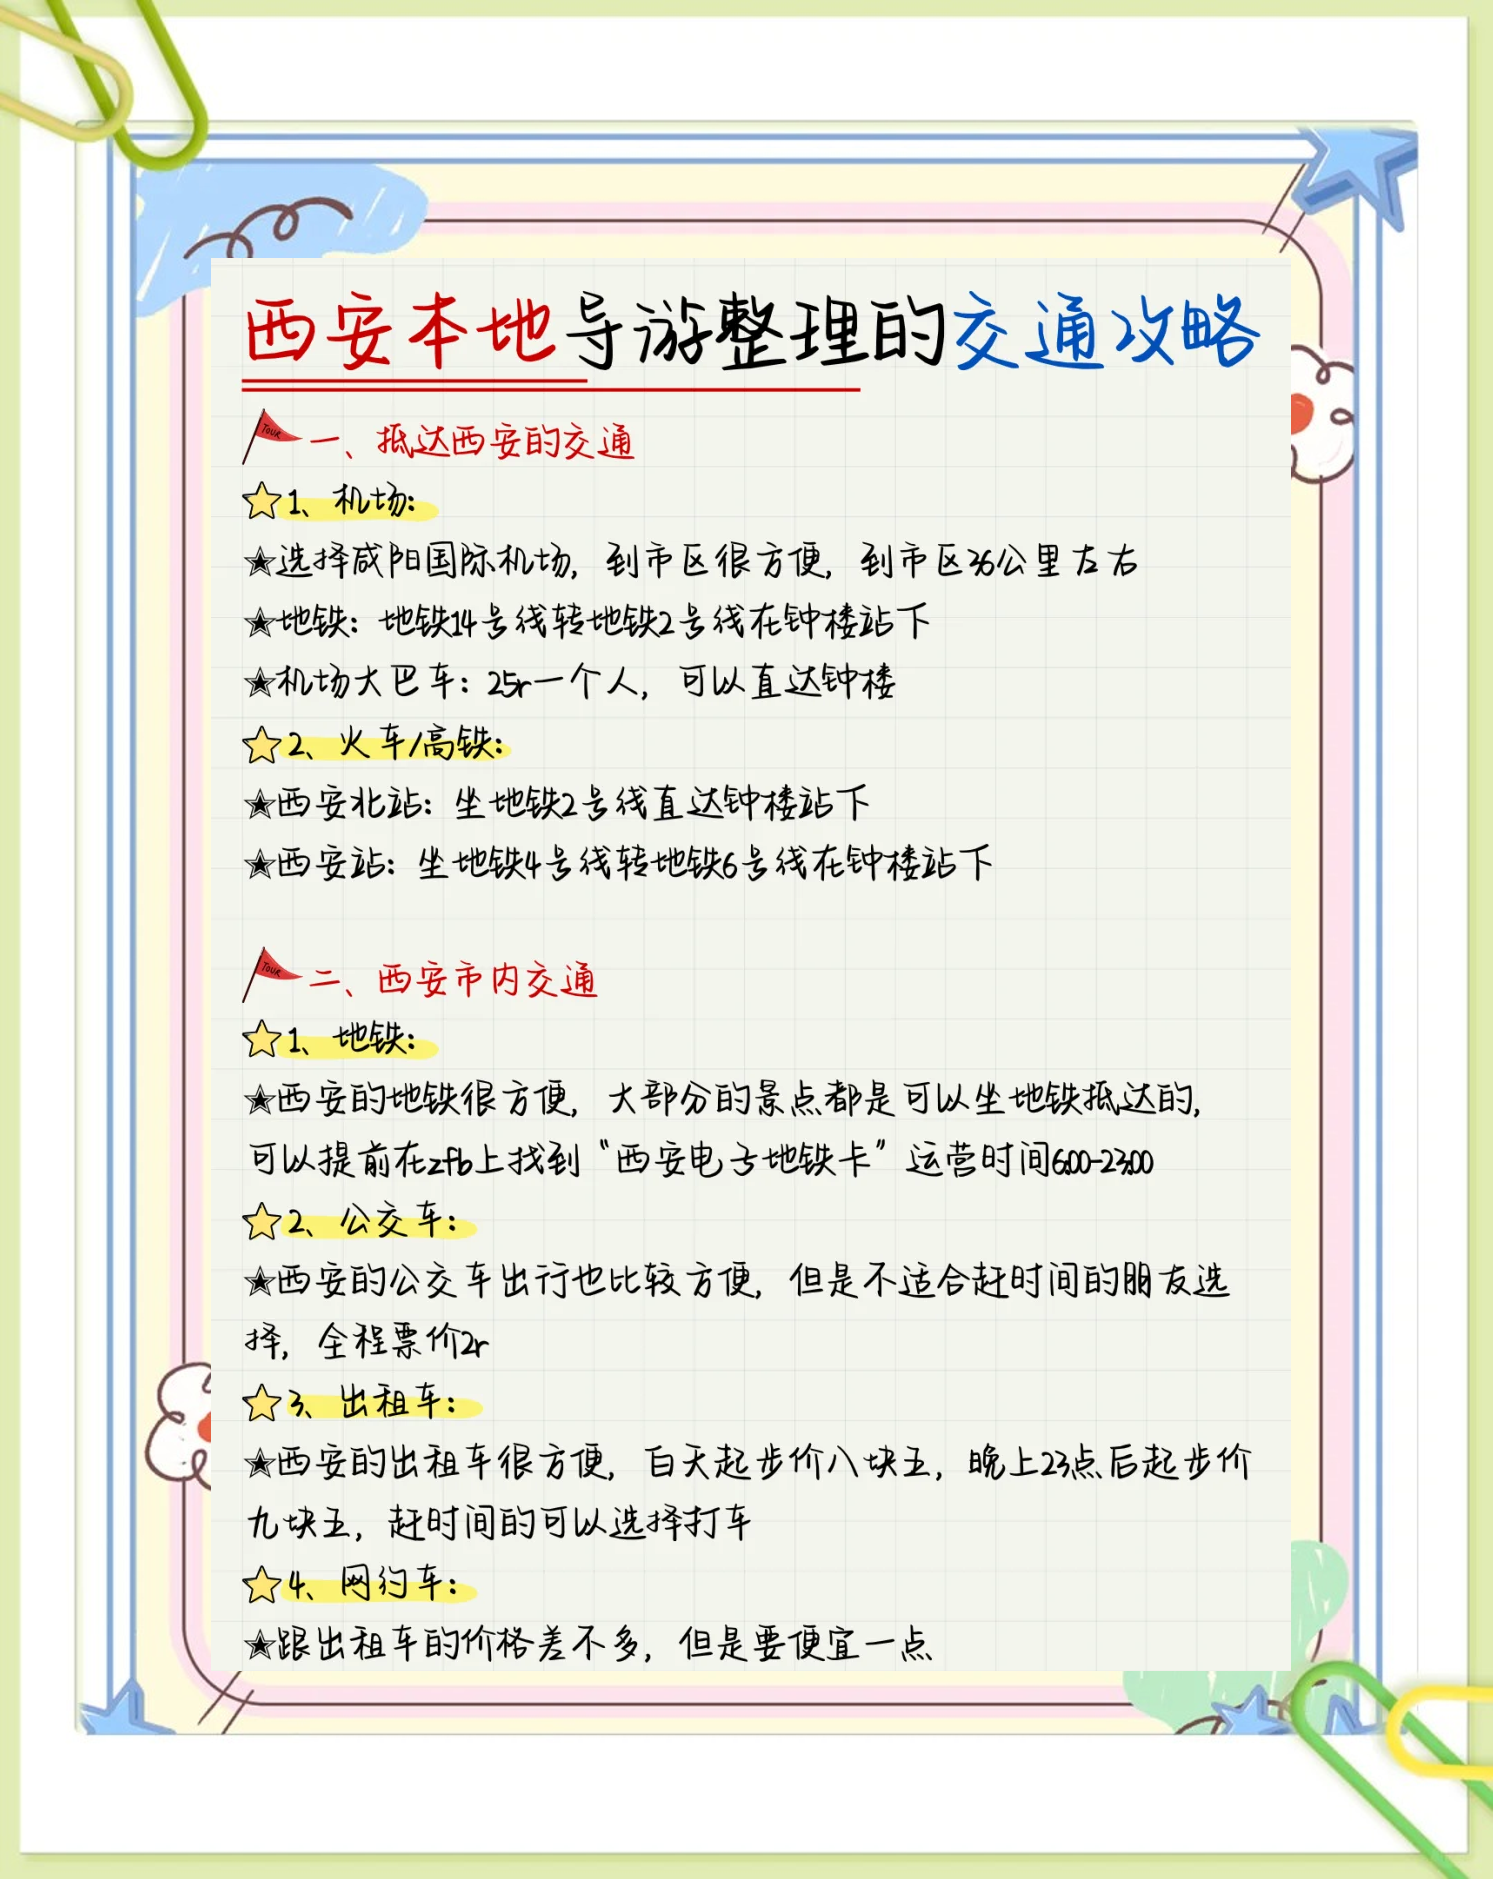 西安本地导游整理的交通攻略
TOUR 一、抵达西安的交通
1、机场:
★选择咸阳国际机场, 到市区很方便, 到市区36公里左右
★地铁: 地铁14号线转地铁2号线在钟楼站下
★机场大巴车: 25r一个人, 可以直达钟楼
2、火车/高铁:
★西安北站: 坐地铁2号线直达钟楼站下
★西安站: 坐地铁4号线转地铁6号线在钟楼站下
TOUR 二、西安市内交通
1、地铁:
★西安的地铁很方便, 大部分的景点都是可以坐地铁抵达的,
可以提前在zfb上找到“西安电子地铁卡” 运营时间6:00-23:00
2、公交车:
★西安的公交车出行也比较方便, 但是不适合赶时间的朋友选
择, 全程票价2r
3、出租车:
★西安的出租车很方便, 白天起步价八块五, 晚上23点后起步价
九块五, 赶时间的可以选择打车
4、网约车:
★跟出租车的价格差不多, 但是要便宜一点